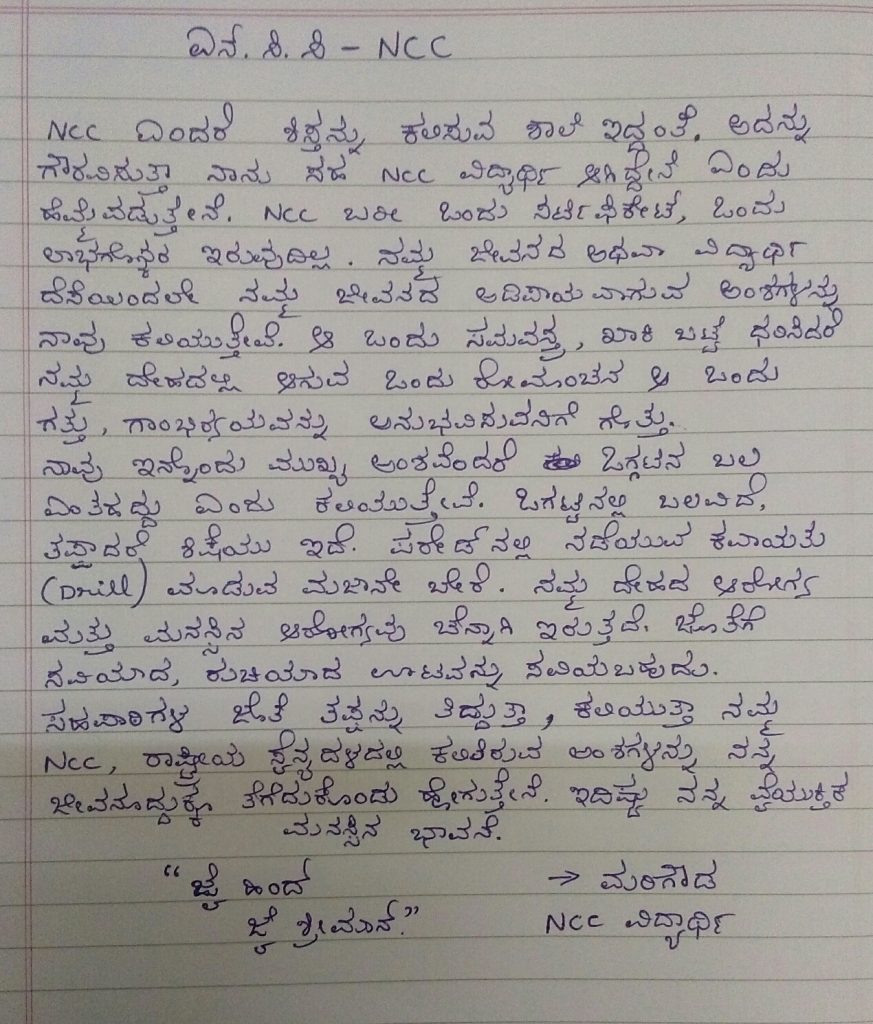 ಎನ್. ಸಿ. ಸಿ – NCC
NCC ಎಂದರೆ ಶಿಸ್ತನ್ನು ಕಲಿಸುವ ಶಾಲೆ ಇದ್ದಂತೆ. ಅದನ್ನು
ಗೌರವಿಸುತ್ತಾ ನಾನು ಸಹ NCC ವಿದ್ಯಾರ್ಥಿ ಆಗಿದ್ದೇನೆ ಎಂದು
ಹೆಮ್ಮೆಪಡುತ್ತೇನೆ. NCC ಬರೀ ಒಂದು ಸರ್ಟಿಫಿಕೇಟ್, ಒಂದು
ಲಾಭಗೋಸ್ಕರ ಇರುವುದಿಲ್ಲ. ನಮ್ಮ ಜೀವನದ ಅಥವಾ ವಿದ್ಯಾರ್ಥಿ
ದೆಸೆಯಿಂದಲೇ ನಮ್ಮ ಜೀವನದ ಅಡಿಪಾಯವಾಗುವ ಅಂಶಗಳನ್ನು
ನಾವು ಕಲಿಯುತ್ತೇವೆ. ಆ ಒಂದು ಸಮವಸ್ತ್ರ, ಖಾಕಿ ಬಟ್ಟೆ ಧರಿಸಿದರೆ
ನಮ್ಮ ದೇಹದಲ್ಲಿ ಆಗುವ ಒಂದು ರೋಮಾಂಚನ ಆ ಒಂದು
ಗತ್ತು, ಗಾಂಭಿರ್ಯಯವನ್ನು ಅನುಭವಿಸುವನಿಗೆ ಗೊತ್ತು.
ನಾವು ಇನ್ನೊಂದು ಮುಖ್ಯ ಅಂಶವೆಂದರೆ ಒಗ್ಗಟಿನ ಬಲ
ಎಂತಹದ್ದು ಎಂದು ಕಲಿಯುತ್ತೇವೆ. ಒಗಟ್ಟಿನಲ್ಲಿ ಬಲವಿದೆ,
ತಪ್ಪಾದರೆ ಶಿಕ್ಷೆಯು ಇದೆ. ಪರೇಡ್‌ನಲ್ಲಿ ನಡೆಯುವ ಕವಾಯತು
(Drill) ಮಾಡುವ ಮಜಾನೇ ಬೇರೆ. ನಮ್ಮ ದೇಹದ ಆರೋಗ್ಯ
ಮತ್ತು ಮನಸ್ಸಿನ ಆರೋಗ್ಯವು ಚೆನ್ನಾಗಿ ಇರುತ್ತದೆ. ಜೊತೆಗೆ
ಸವಿಯಾದ, ರುಚಿಯಾದ ಊಟವನ್ನು ಸವಿಯಬಹುದು.
ಸಹಪಾಠಿಗಳ ಜೊತೆ ತಪ್ಪನ್ನು ತಿದ್ದುತ್ತಾ, ಕಲಿಯುತ್ತಾ ನಮ್ಮ
NCC, ರಾಷ್ಟ್ರೀಯ ಸೈನ್ಯದಳದಲ್ಲಿ ಕಲಿತಿರುವ ಅಂಶಗಳನ್ನು ನನ್ನ
ಜೀವನೂದ್ದುಕ್ಕೂ ತೆಗೆದುಕೊಂಡು ಹೋಗುತ್ತೇನೆ. ಇದಿಷ್ಟು ನನ್ನ ವೈಯುಕ್ತಿಕ
ಮನಸ್ಸಿನ ಭಾವನೆ.
“ ಜೈ ಹಿಂದ್ → ಮರಿಗೌಡ
ಜೈ ಶ್ರೀಮಾನ್.” NCC ವಿದ್ಯಾರ್ಥಿ